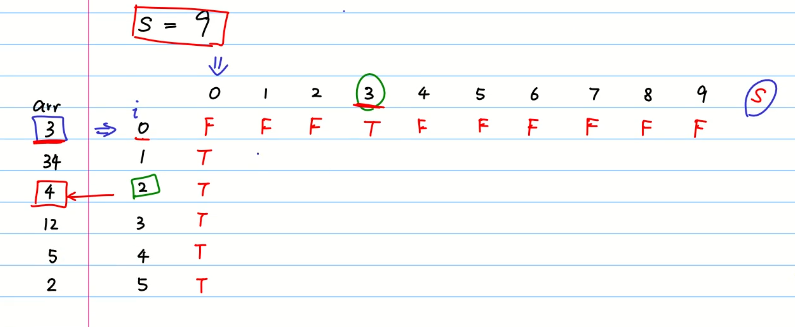 S = 9
0 1 2 3 4 5 6 7 8 9 S
arr i
3 ⇒ 0 F F F T F F F F F F
34 1 T
4 ← 2 T
12 3 T
5 4 T
2 5 T